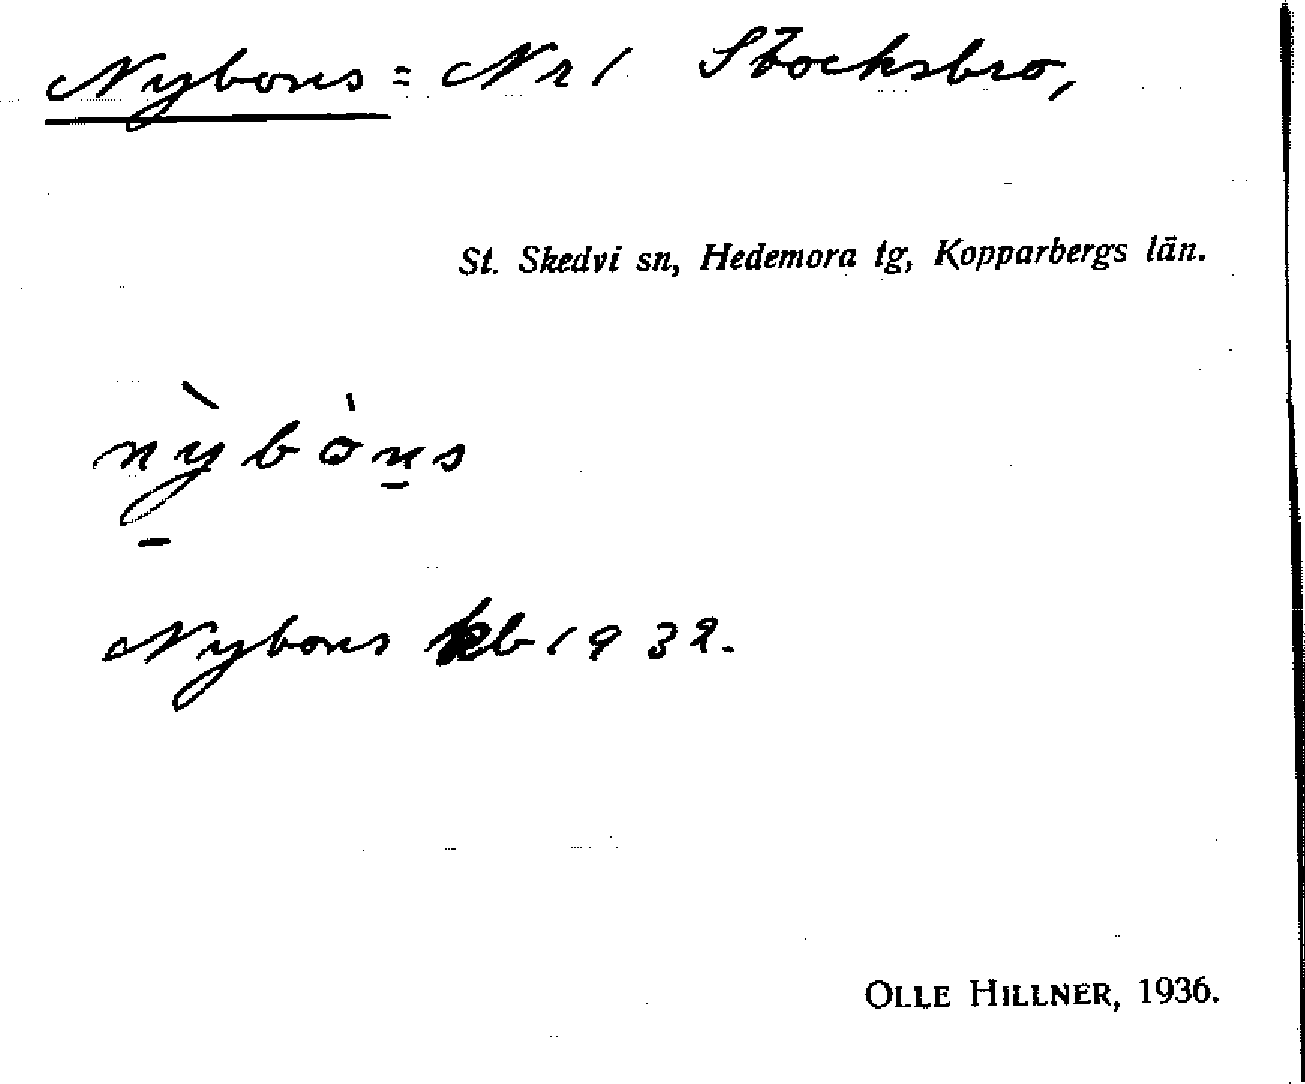 Nybons = Nr 1 Stocksbro,
St. Skedvi sn, Hedemora tg, Kopparbergs län.
Nybons kb 1932.
OLLE HILLNER, 1936.